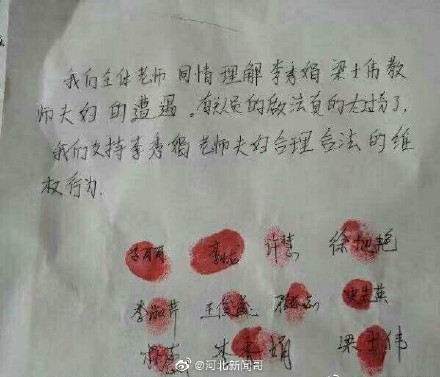 我们全体老师同情理解李秀娟梁士伟教
师夫妇的遭遇。有关人员的做法真的太过分了，
我们支持李秀娟老师夫妇合理合法的维
权行为.
许慧 徐旭艳
李淑芹 王俊
李秀娟 梁士伟
@河北新闻哥